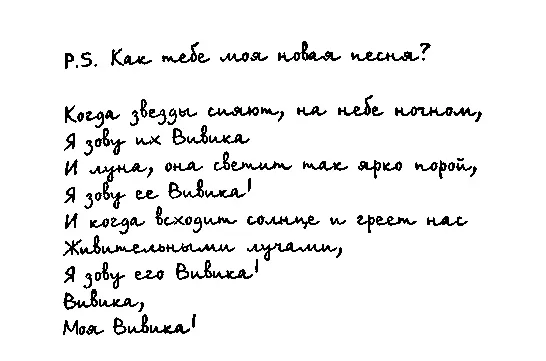 P.S. Как тебе моя новая песня?
Когда звезды сияют, на небе ночном,
Я зову их Вивика
И луна, она светит так ярко порой,
Я зову ее Вивика!
И когда всходит солнце и греет нас
Живительными лучами,
Я зову его Вивика!
Вивика,
Моя Вивика!